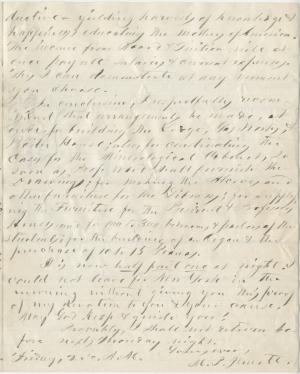 yielding harvests of knowledge &
happiness educating the mothers of America.
The income from Room & Tuition will at
once pay all salaries & annual expenses.
This I can demonstrate at any moment
you choose.
In conclusion, I respectfully recom-
mend that arrangements be made, at
once for building the Lodge, Gas Works,
for continuing the
Cases for the Mineralogical Cabinet, so
soon as Prof. shall furnish the
Drawings, for making the Shelves and
other furniture for the Library; for supply-
ing the Furniture for the President & Professors
Houses, rooms & parlors of the
Students; for the building of an Organ & the
purchase of 10 to 15 Pianos.
It is now half past one at night. I
could not leave for New York in the
morning without giving you this proof
of my devotion to you & your cause.
May God keep & guide you!
Probably, I shall not return be-
fore next Thursday night.
Yours ever,
Friday, A.M. M. P. Jewett.